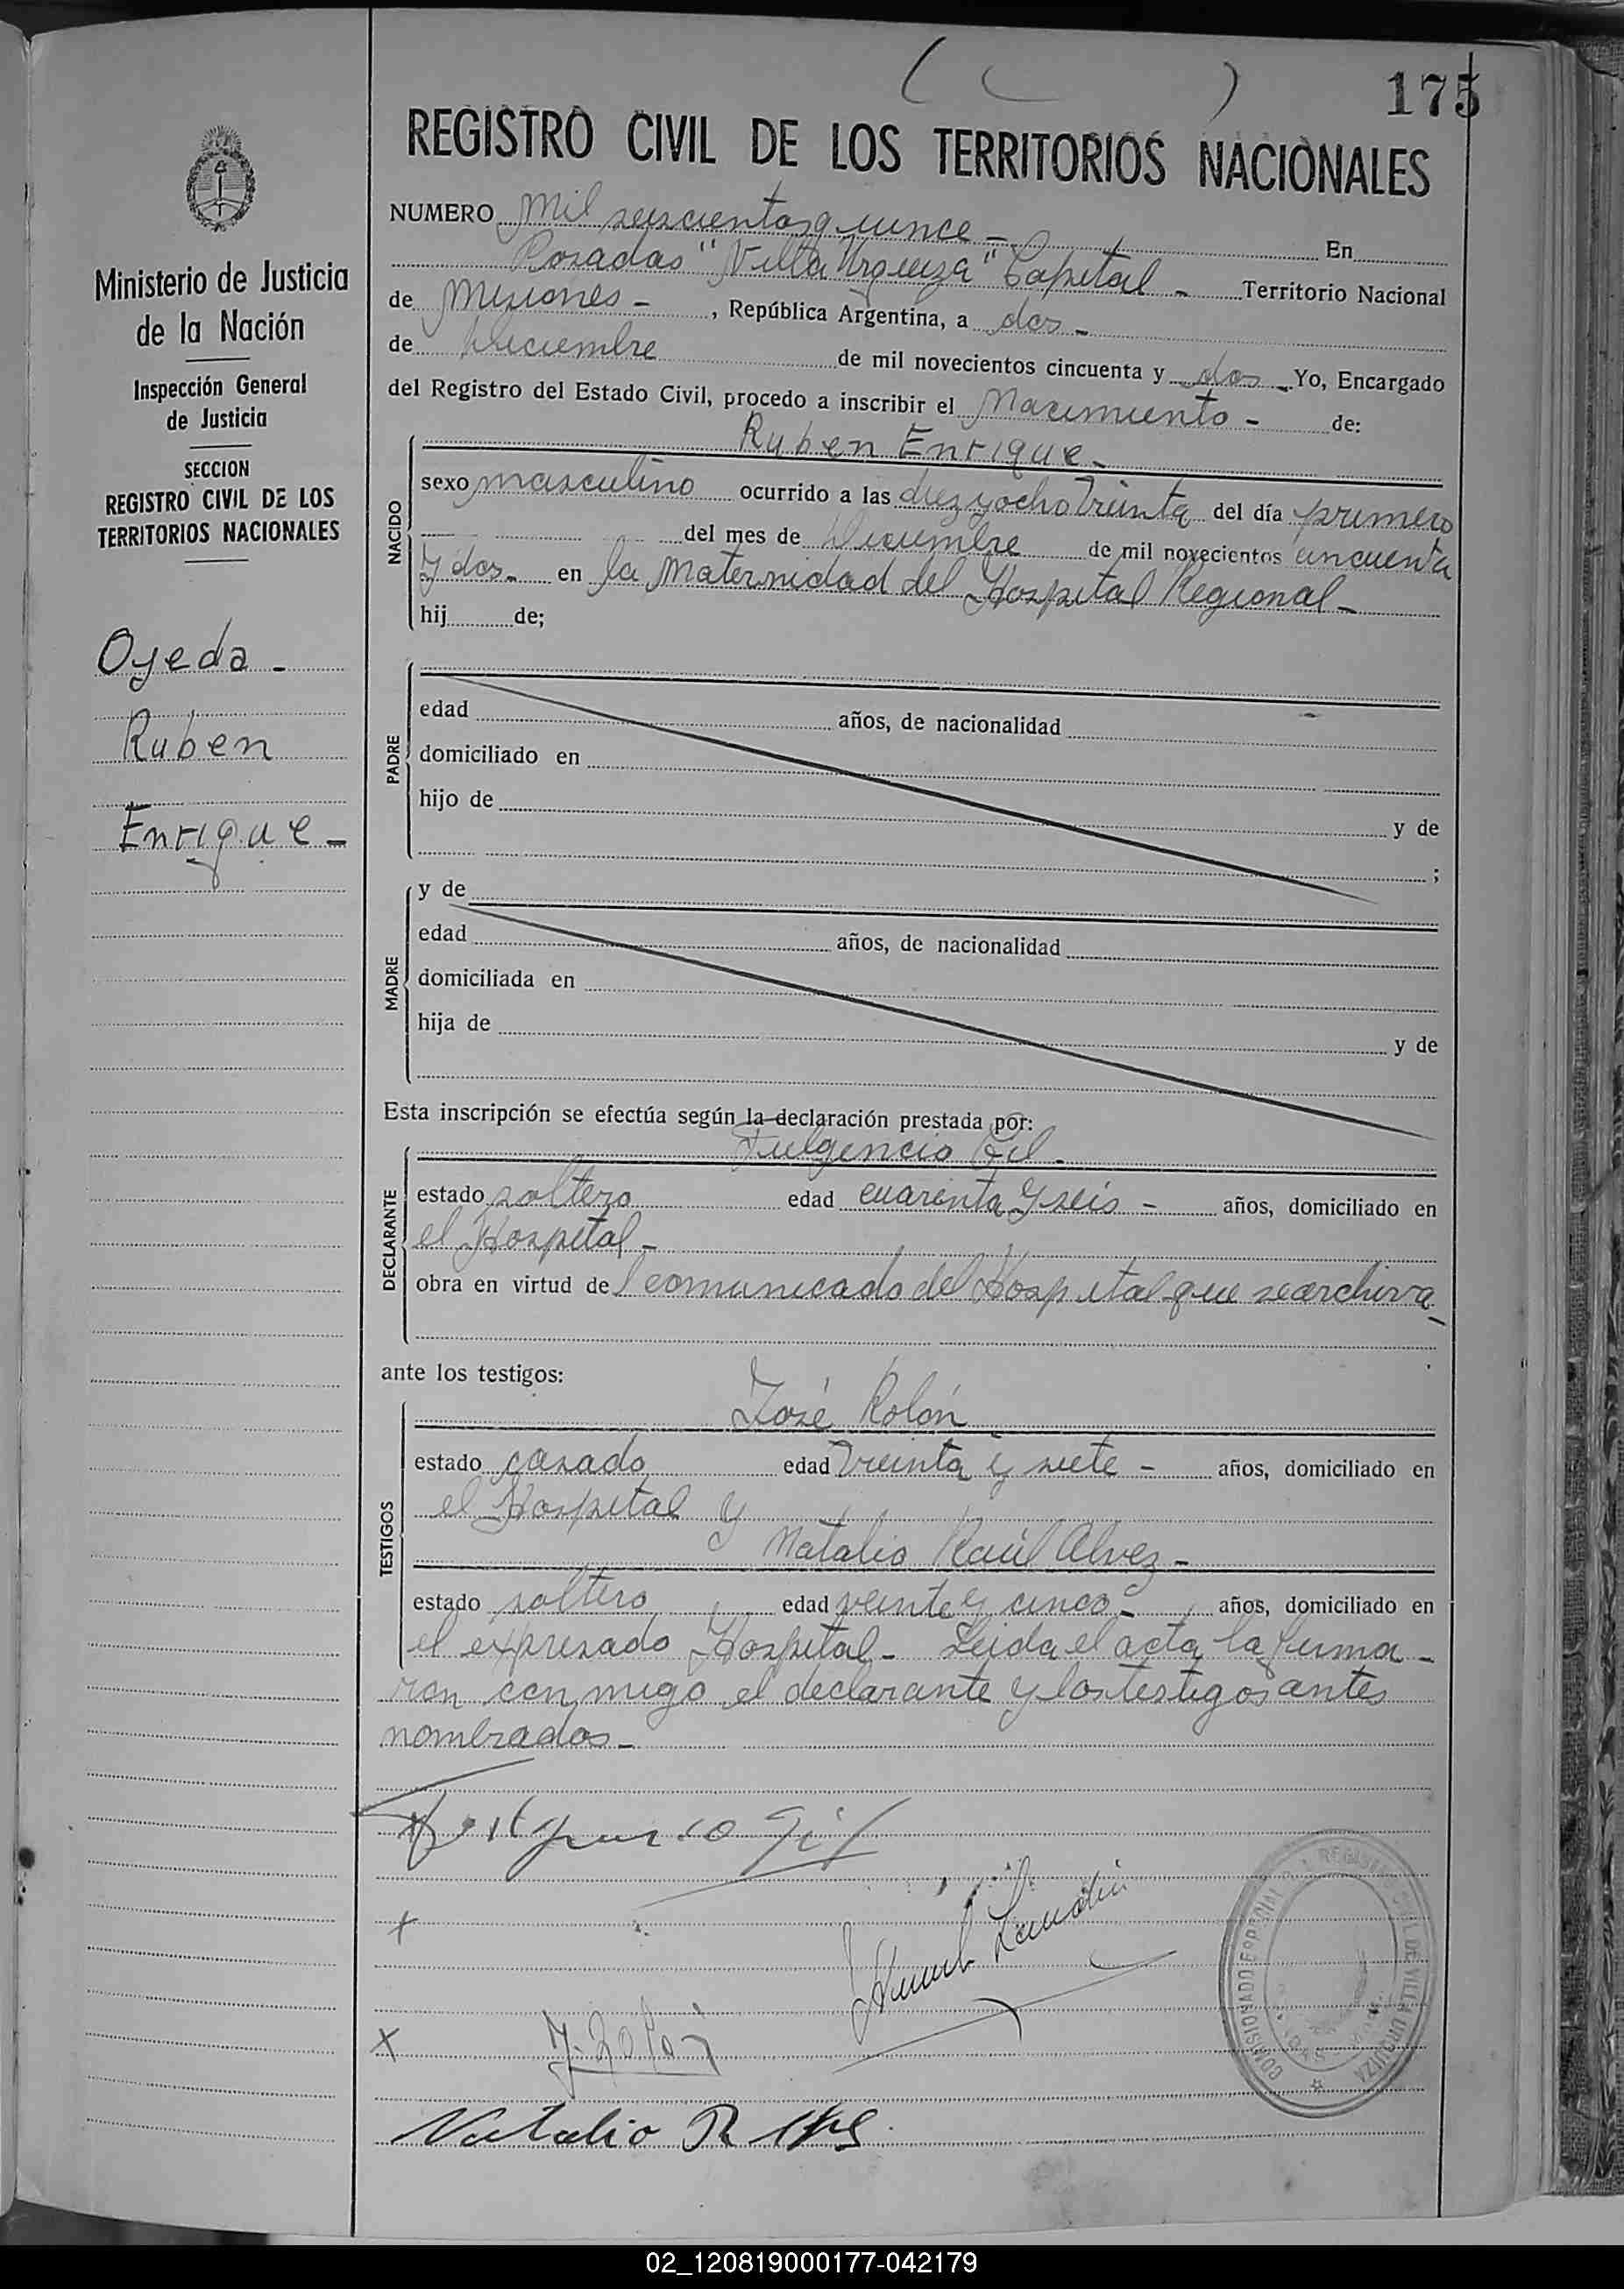 175
REGISTRO CIVIL DE LOS TERRITORIOS NACIONALES
NUMERO Mil seiscientos quince - En
Posadas "Villa Urquiza" Capital - Territorio Nacional
de Misiones - , República Argentina, a dos -
de Diciembre de mil novecientos cincuenta y dos - Yo, Encargado
del Registro del Estado Civil, procedo a inscribir el Nacimiento - de:
Ministerio de Justicia
de la Nación
Inspección General
de Justicia
SECCION
REGISTRO CIVIL DE LOS
TERRITORIOS NACIONALES
Ojeda -
Ruben
Enrique -
NACIDO
Ruben Enrique -
sexo masculino ocurrido a las diez y ocho treinta del día primero
del mes de Diciembre de mil novecientos cincuenta
y dos - en la Maternidad del Hospital Regional -
hij de;
PADRE
edad años, de nacionalidad
domiciliado en
hijo de y de
;
MADRE
y de
edad años, de nacionalidad
domiciliada en
hija de y de
Esta inscripción se efectúa según la declaración prestada por:
DECLARANTE
Fulgencio Gil -
estado soltero edad cuarenta y seis - años, domiciliado en
el Hospital -
obra en virtud del comunicado del Hospital que se archiva -
ante los testigos:
TESTIGOS
José Rolón
estado casado edad treinta y siete - años, domiciliado en
el Hospital y
Natalio Raúl Alvez -
estado soltero edad veinte y cinco - años, domiciliado en
el expresado Hospital - Leida el acta la firma -
ron conmigo el declarante y los testigos antes
nombrados -
Gil
J. Rolon
Natalio R
COMISIONADO ESPECIAL REGISTRO CIVIL DE VILLA URQUIZA
02_120819000177-042179